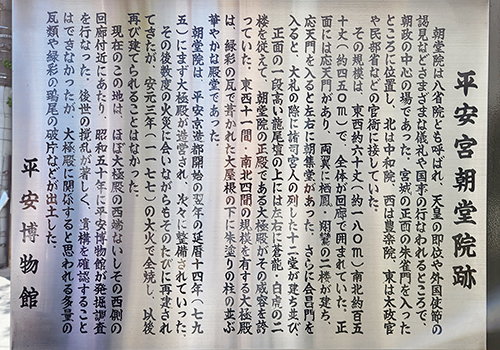 平安宮朝堂院跡
朝堂院は八省院とも呼ばれ、天皇の即位や外国使節の
謁見などさまざまな儀礼や国事の行なわれるところで、
朝政の中心の場であった。宮城の正面の朱雀門を入った
ところに位置し、北は中和院、西は豊楽院、東は太政官
や民部省などの官衙に接していた。
その規模は、東西約六十丈（約一八〇m）、南北約百五
十丈（約四五〇m）で、全体が回廊で囲まれていた。正
面には応天門があり、両翼に栖鳳・翔鸞の二楼が建ち、
応天門を入ると左右に朝集堂があった。さらに会昌門を
入ると、大礼の際に諸司官人の列した十二堂が建ち並び、
正面の一段高い龍尾壇の上には左右に蒼龍・白虎の二
楼を従えて、朝堂院の正殿である大極殿がその威容を誇
っていた。東西十一間・南北四間の規模を有する大極殿
は、緑彩の瓦で葺かれた大屋根の下に朱塗りの柱の並ぶ
華やかな殿堂であった。
朝堂院は、平安京造都開始の翌年の延暦十四年（七九
五）にまず大極殿が造営され、次々に整備されていった。
その後数度の火災に会いながらもそのたびに再建され
てきたが、安元三年（一一七七）の大火で全焼し、以後
再び建てられることはなかった。
現在のこの地は、ほぼ大極殿の西端ないしその西側の
回廊付近にあたり、昭和五十年に平安博物館が発掘調査
を行なった。後世の撹乱が著しく、遺構を確認すること
はできなかったが、大極殿に関係すると思われる多量の
瓦類や緑彩の鴟尾の破片などが出土した。
平安博物館